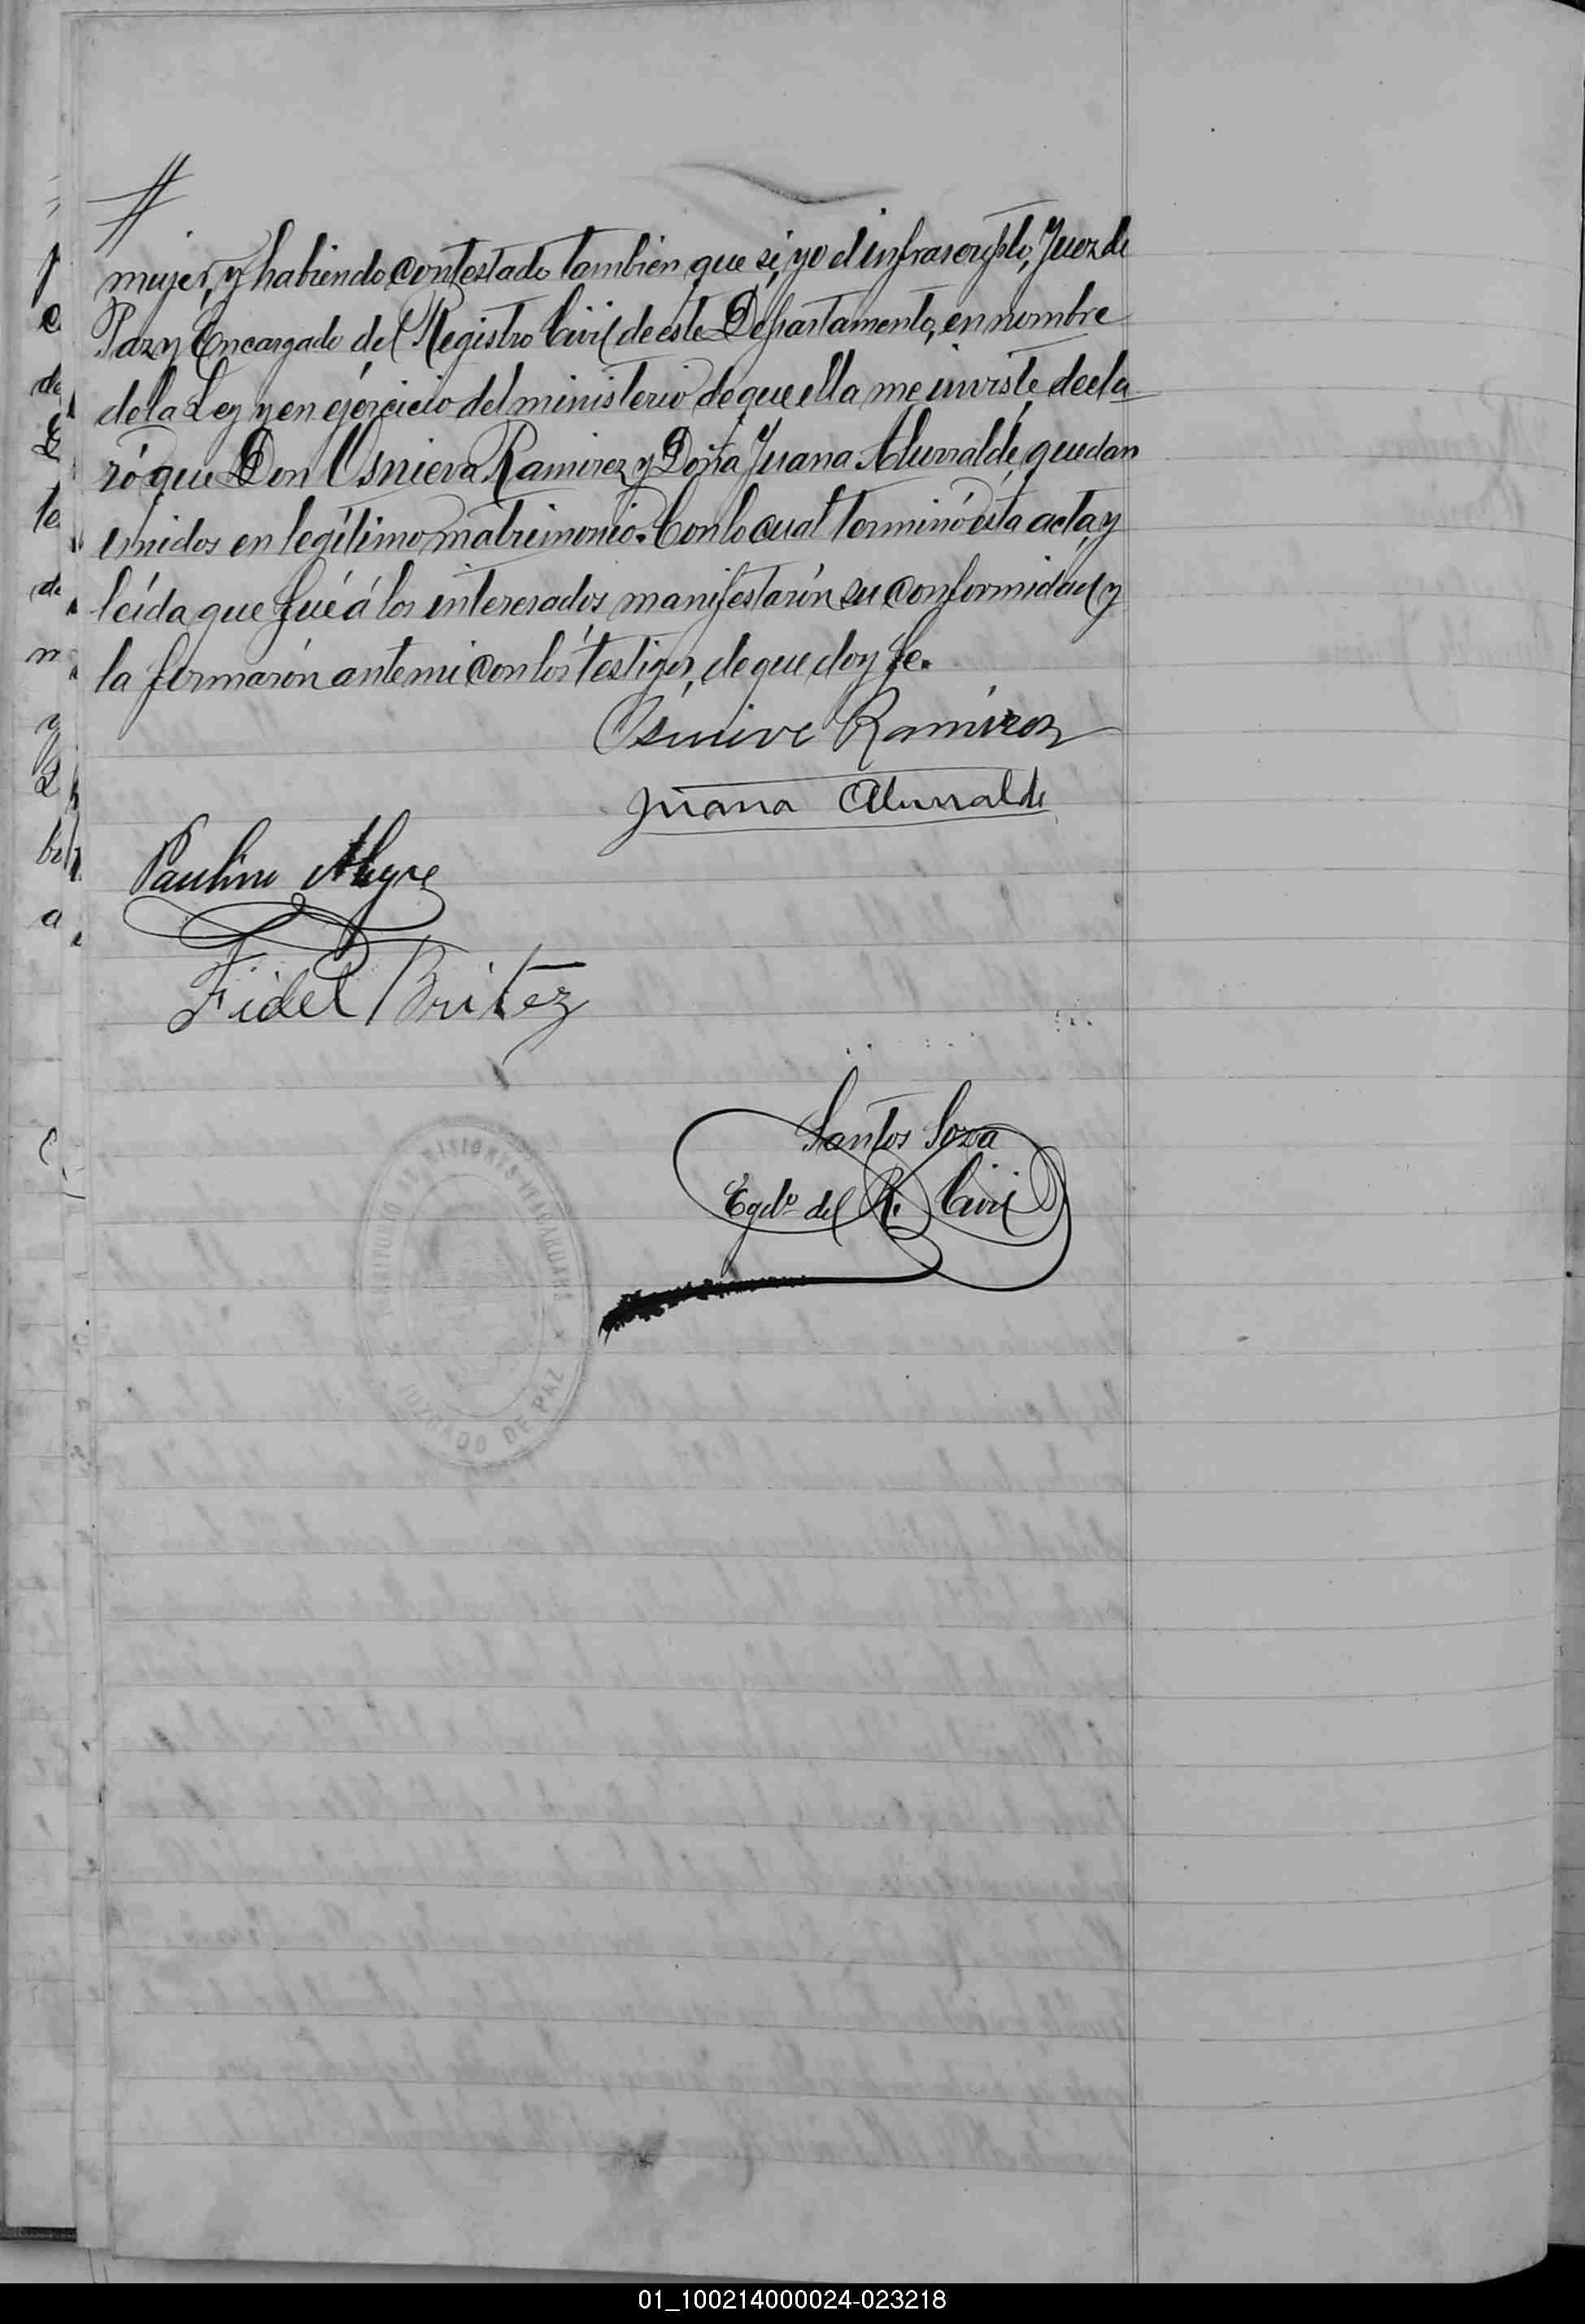 mujer, y habiendo contestado tambien que si, yo el infrascripto, Juez de
Paz y Encargado del Registro Civil de este Departamento, en nombre
de la Ley y en ejercicio del ministerio de que ella me inviste decla
ró que Don Osnieva Ramirez y Doña Juana Alurralde, quedan
unidos en legítimo matrimonio. Con lo cual terminó esta acta, y
leída que fué á los interesados, manifestarón su conformidad y
la firmarón ante mi con los testigos, de que doy fe.
Osnive Ramirez
Juana Alurralde
Paulino Alegre
Fidel Britez
Santos Soza
Egdo del R. Civil
TERRITORIO DE MISIONES
JUZGADO DE PAZ
01_100214000024-023218